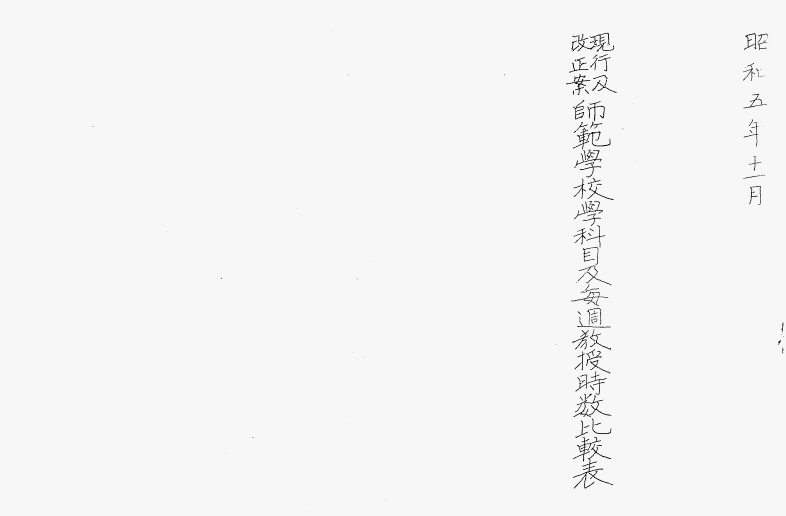 昭和五年十一月
現行及
改正案
師範學校學科目及毎週教授時数比較表